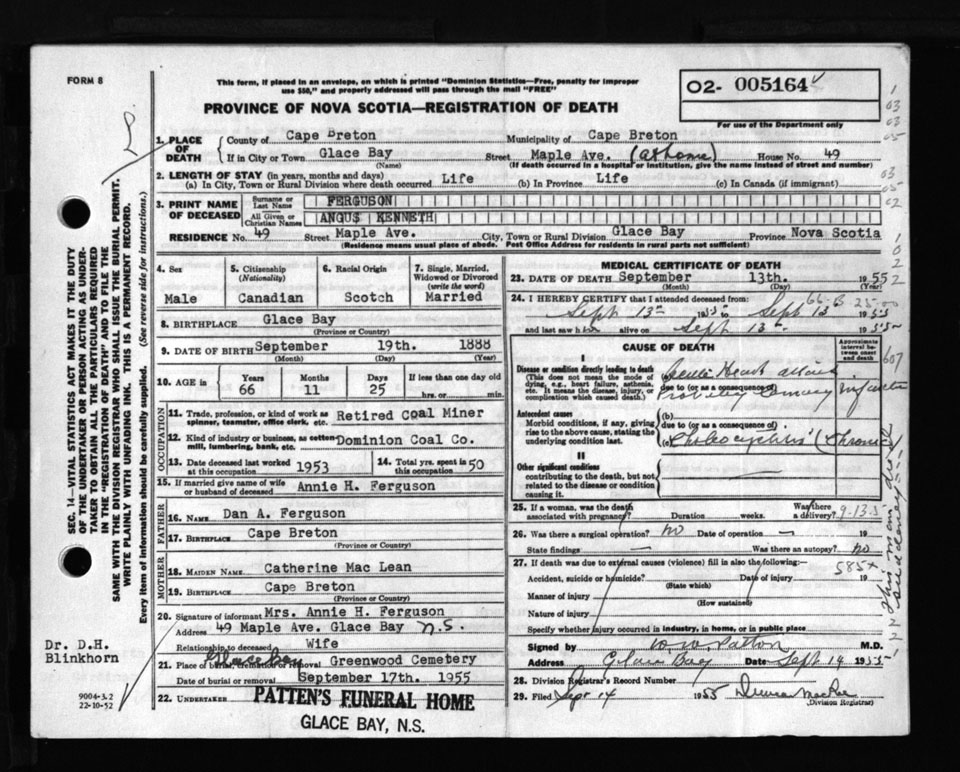 FORM 8
This form, if placed in an envelope, on which is printed "Dominion Statistics—Free, penalty for improper
use $50," and properly addressed will pass through the mail "FREE"
PROVINCE OF NOVA SCOTIA—REGISTRATION OF DEATH
O2- 005164
For use of the Department only
1. PLACE OF DEATH County of Cape Breton Municipality of Cape Breton
If in City or Town Glace Bay Street Maple Ave. (at home) House No. 49
(Name) (If death occurred in a hospital or institution, give the name instead of street and number)
2. LENGTH OF STAY (in years, months and days)
(a) In City, Town or Rural Division where death occurred Life (b) In Province Life (c) In Canada (if immigrant)
3. PRINT NAME OF DECEASED Surname or Last Name FERGUSON
All Given or Christian Names ANGUS KENNETH
RESIDENCE No. 49 Street Maple Ave. City, Town or Rural Division Glace Bay Province Nova Scotia
(Residence means usual place of abode. Post Office Address for residents in rural parts not sufficient)
4. Sex Male
5. Citizenship (Nationality) Canadian
6. Racial Origin Scotch
7. Single, Married, Widowed or Divorced (write the word) Married
8. BIRTHPLACE Glace Bay
(Province or Country)
9. DATE OF BIRTH September 19th. 1888
(Month) (Day) (Year)
10. AGE in Years Months Days If less than one day
66 11 25 hrs. or min.
OCCUPATION
11. Trade, profession, or kind of work as spinner, teamster, office clerk, etc. Retired Coal Miner
12. Kind of industry or business, as cotton mill, lumbering, bank, etc. Dominion Coal Co.
13. Date deceased last worked at this occupation 1953
14. Total yrs. spent in this occupation 50
15. If married give name of wife or husband of deceased Annie H. Ferguson
FATHER
16. NAME Dan A. Ferguson
17. BIRTHPLACE Cape Breton
(Province or Country)
MOTHER
18. MAIDEN NAME Catherine Mac Lean
19. BIRTHPLACE Cape Breton
(Province or Country)
20. Signature of informant Mrs. Annie H. Ferguson
Address 49 Maple Ave. Glace Bay N.S.
Relationship to deceased Wife
21. Place of burial, cremation or removal Glace Bay Greenwood Cemetery
Date of burial or removal September 17th. 1955
22. UNDERTAKER PATTEN'S FUNERAL HOME
GLACE BAY, N.S.
MEDICAL CERTIFICATE OF DEATH
23. DATE OF DEATH September 13th. 1955
(Month) (Day)
24. I HEREBY CERTIFY that I attended deceased from:
Sept 13th 1955 to Sept 13 1955
and last saw him alive on Sept 13th 1955
CAUSE OF DEATH
Approximate interval between onset and death
I
Disease or condition directly leading to death
(This does not mean the mode of dying, e.g., heart failure, asthenia, etc. It means the disease, injury, or complication which caused death)
Heart attack
due to (or as a consequence of)
Probably Coronary
Antecedent causes
Morbid conditions, if any, giving rise to the above cause, stating the underlying condition last.
(b)
due to (or as a consequence of)
(c) (Chronic)
II
Other significant conditions
contributing to the death, but not related to the disease or condition causing it.
25. If a woman, was the death associated with pregnancy? Duration weeks. Was there a delivery?
9-13-5
26. Was there a surgical operation? no Date of operation —
State findings — Was there an autopsy? no
27. If death was due to external causes (violence) fill in also the following:—
585x
Accident, suicide or homicide? Date of injury 19
(State which)
Manner of injury
(How sustained)
Nature of injury
Specify whether injury occurred in industry, in home, or in public place
Signed by W. W. Patton M.D.
Address Glace Bay Date Sept 14 1955
28. Division Registrar's Record Number
29. Filed Sept 14 1955 Duncan MacRae
(Division Registrar)
This man died suddenly
607
SEC. 14—VITAL STATISTICS ACT MAKES IT THE DUTY
OF THE UNDERTAKER OR PERSON ACTING AS UNDER-
TAKER TO OBTAIN ALL THE PARTICULARS REQUIRED
IN THE "REGISTRATION OF DEATH" AND TO FILE THE
SAME WITH THE DIVISION REGISTRAR WHO SHALL ISSUE THE BURIAL PERMIT.
WRITE PLAINLY WITH UNFADING INK. THIS IS A PERMANENT RECORD.
Every item of information should be carefully supplied. (See reverse side for instructions.)
Dr. D.H.
Blinkhorn
9004-3.2
22-10-52